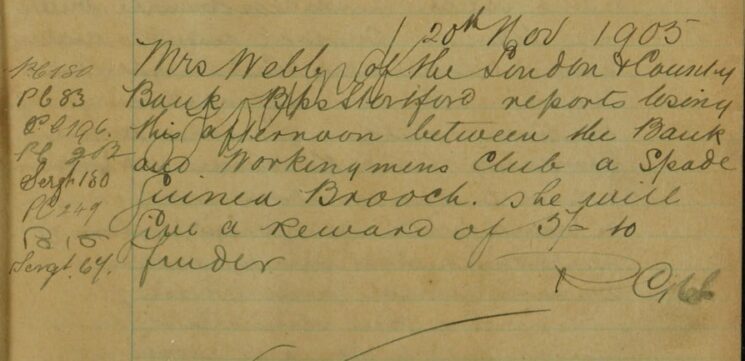 20th Nov 1905
Mrs Webb, of the London & County
Bank Bps Stortford reports losing
this afternoon between the Bank
and Workingmens Club a Spade
Guinea Brooch. She will
Give a Reward of 5/- to
finder
PC 180
PC 83
PC 196.
Sergt 180
PC 249
Sergt. 64.